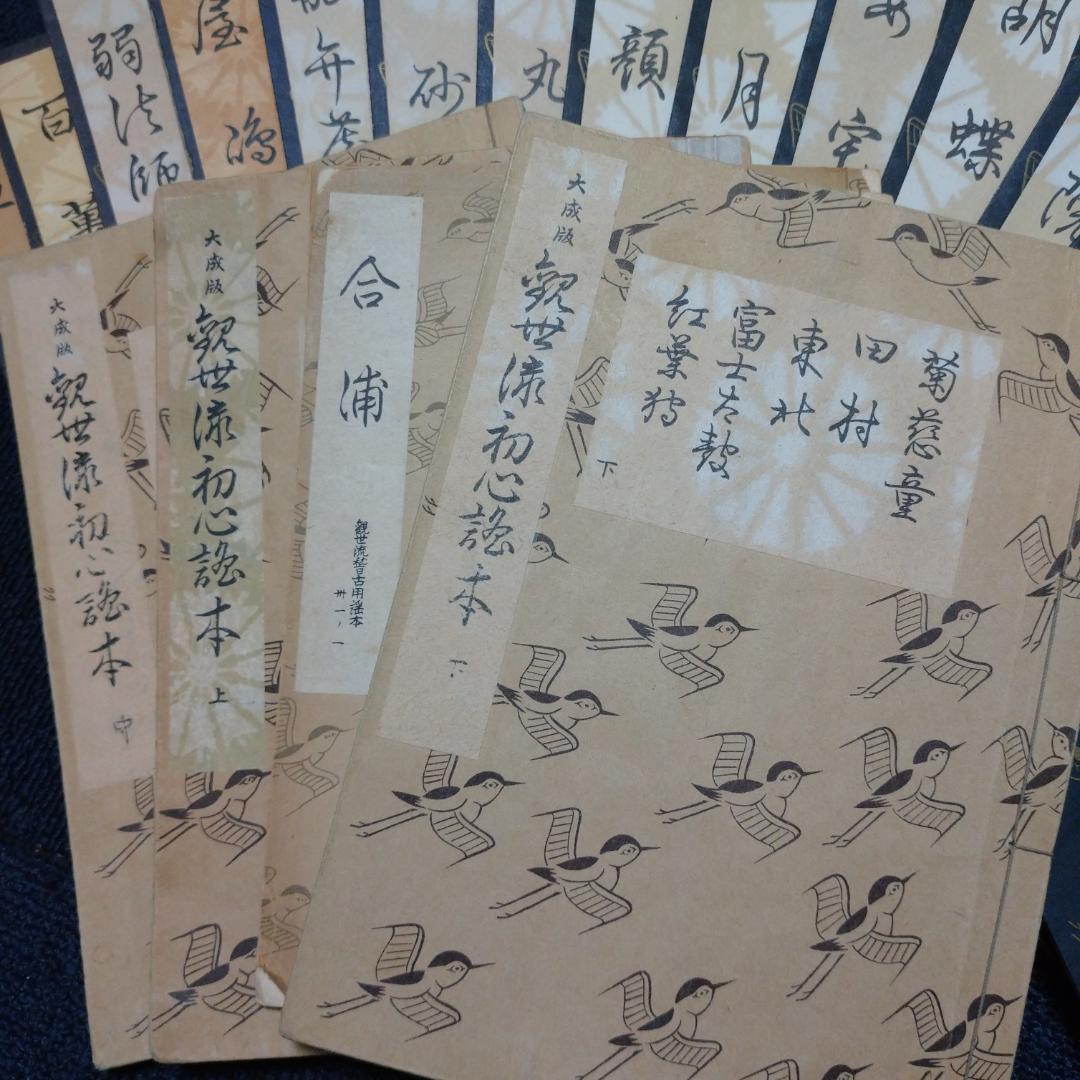 百萬
弱法師
屋
鴻
弁慶
砂
丸
顔
月
宇
胡蝶
大成版
觀世流初心謠本
中
大成版
觀世流初心謠本
上
合浦
觀世流稽古用謠本
卅一ノ一
大成版
觀世流初心謠本
下
菊慈童
田村
東北
富士太鼓
紅葉狩
下